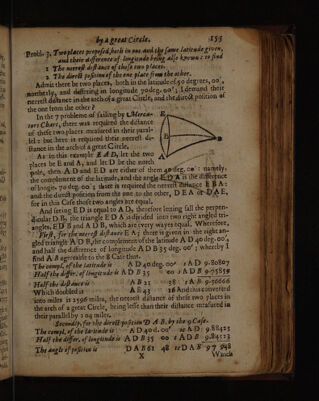 by a great Circle. 155
Probl. 3. Two places proposed, both in one and the same latitude given,
and their difference of longitude being also known: to find
1 The nearest distance of those two places.
2 The direct position of the one place from the other.
Admit there be two places, both in the latitude of 50 degrees, 00',
northerly, and differing in longitude 70 deg. 00'; I demand their
neerest distance in the arch of a great Circle, and the direct position of
the one from the other?
In the 7 probleme of sailing by Merca-
tors Chart, there was required the distance
of these two places measured in their paral-
lel: but here is required their neerest di-
stance in the arch of a great Circle.
As in this example EAD, let the two
places be E and A, and let D be the north
pole, then AD and ED are either of them 40 deg. 00': namely,
the complement of the latitude, and the angle EDA is the difference
of longit. 70 deg. 00'; there is required the neerest distance EBA:
and the direct position from the one to the other, DEA or DAE,
for in this Case those two angles are equal.
And seeing ED is equal to AD, therefore letting fall the perpen-
dicular DB, the triangle EDA is divided into two right angled tri-
angles, EDB and ADB, which are every wayes equal. Wherefore,
First, for the nearest distance EA; there is given in the right an-
gled triangle ADB, the complement of the latitude AD 40 deg. 00',
and half the difference of longitude ADB 35 deg. 00'; whereby I
find AB agreeable to the 8 Case thus.
The compl. of the latitude is AD 40 deg. 00' s AD 9.80807
Half the differ. of longitude is ADB 35 00 s ADB 9.75859
Half the distance is AB 21 38 s AB 9.56666
Which doubled is EA 43 16 And this converted
into miles is 2596 miles, the neerest distance of these two places in
the arch of a great Circle, being lesse than their distance measured in
their parallel by 104 miles.
Secondly, for the direct position DAB, by the 9 Case.
The compl. of the latitude is AD 40 d. 00'
Half the differ. of longitude ADB 35 00
The angle of position is DAB 61 48
X Which